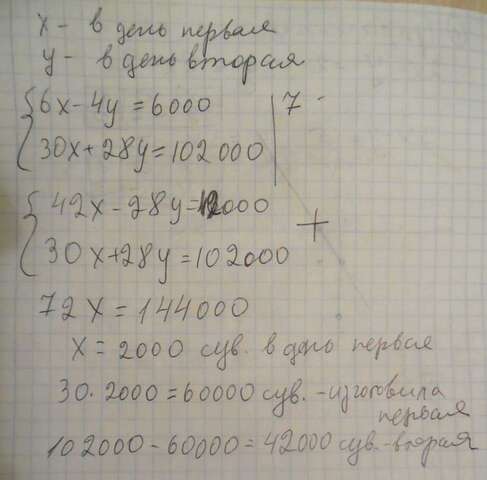 x - в день первая
y - в день вторая
{ 6x - 4y = 6000 | 7
30x + 28y = 102 000
{ 42x - 28y = 42000
+
30x + 28y = 102000
72x = 144000
x = 2000 сув. в день первая
30 · 2000 = 60000 сув. - изготовила
первая
102000 - 60000 = 42000 сув. - вторая